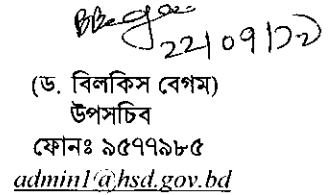 22/09/22
(ড. বিলকিস বেগম)
উপসচিব
ফোনঃ ৯৫৭৭৯৮৫
admin1@hsd.gov.bd